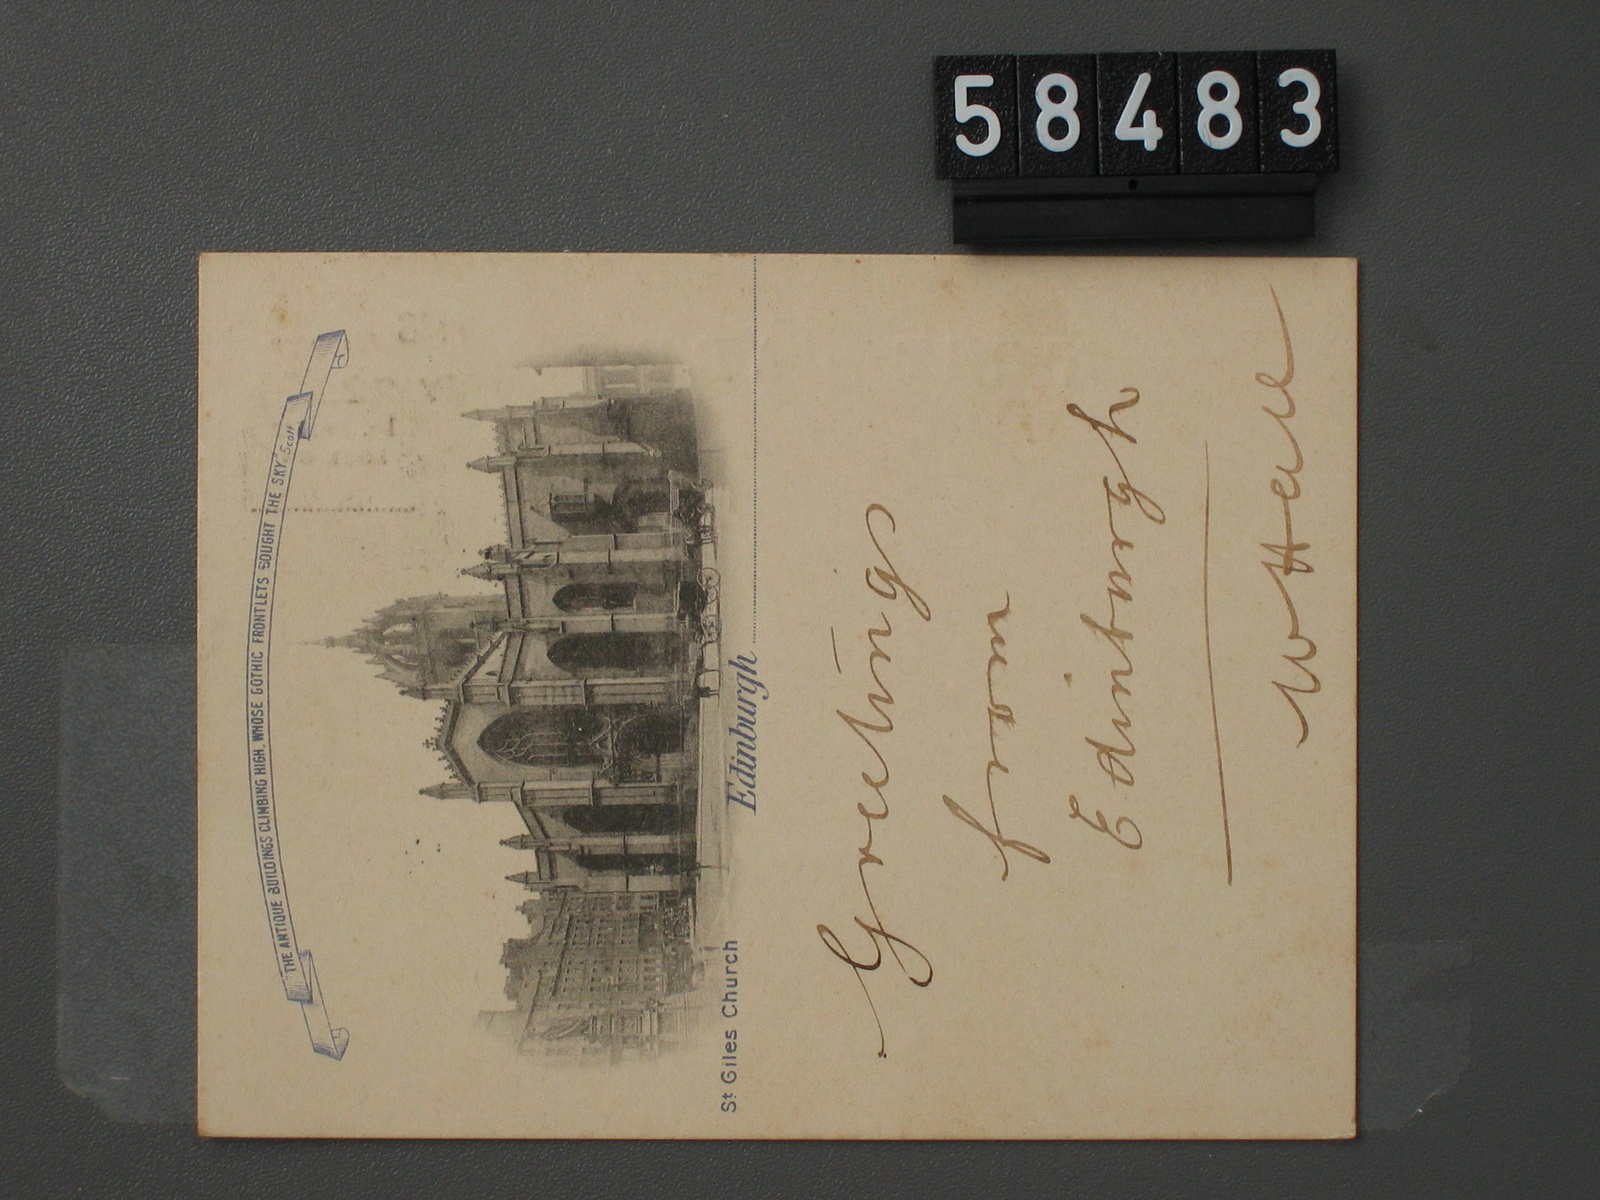 58483
"THE ANTIQUE BUILDINGS CLIMBING HIGH, WHOSE GOTHIC FRONTLETS SOUGHT THE SKY." Scott
St Giles Church
Edinburgh
Greetings
from
Edinburgh